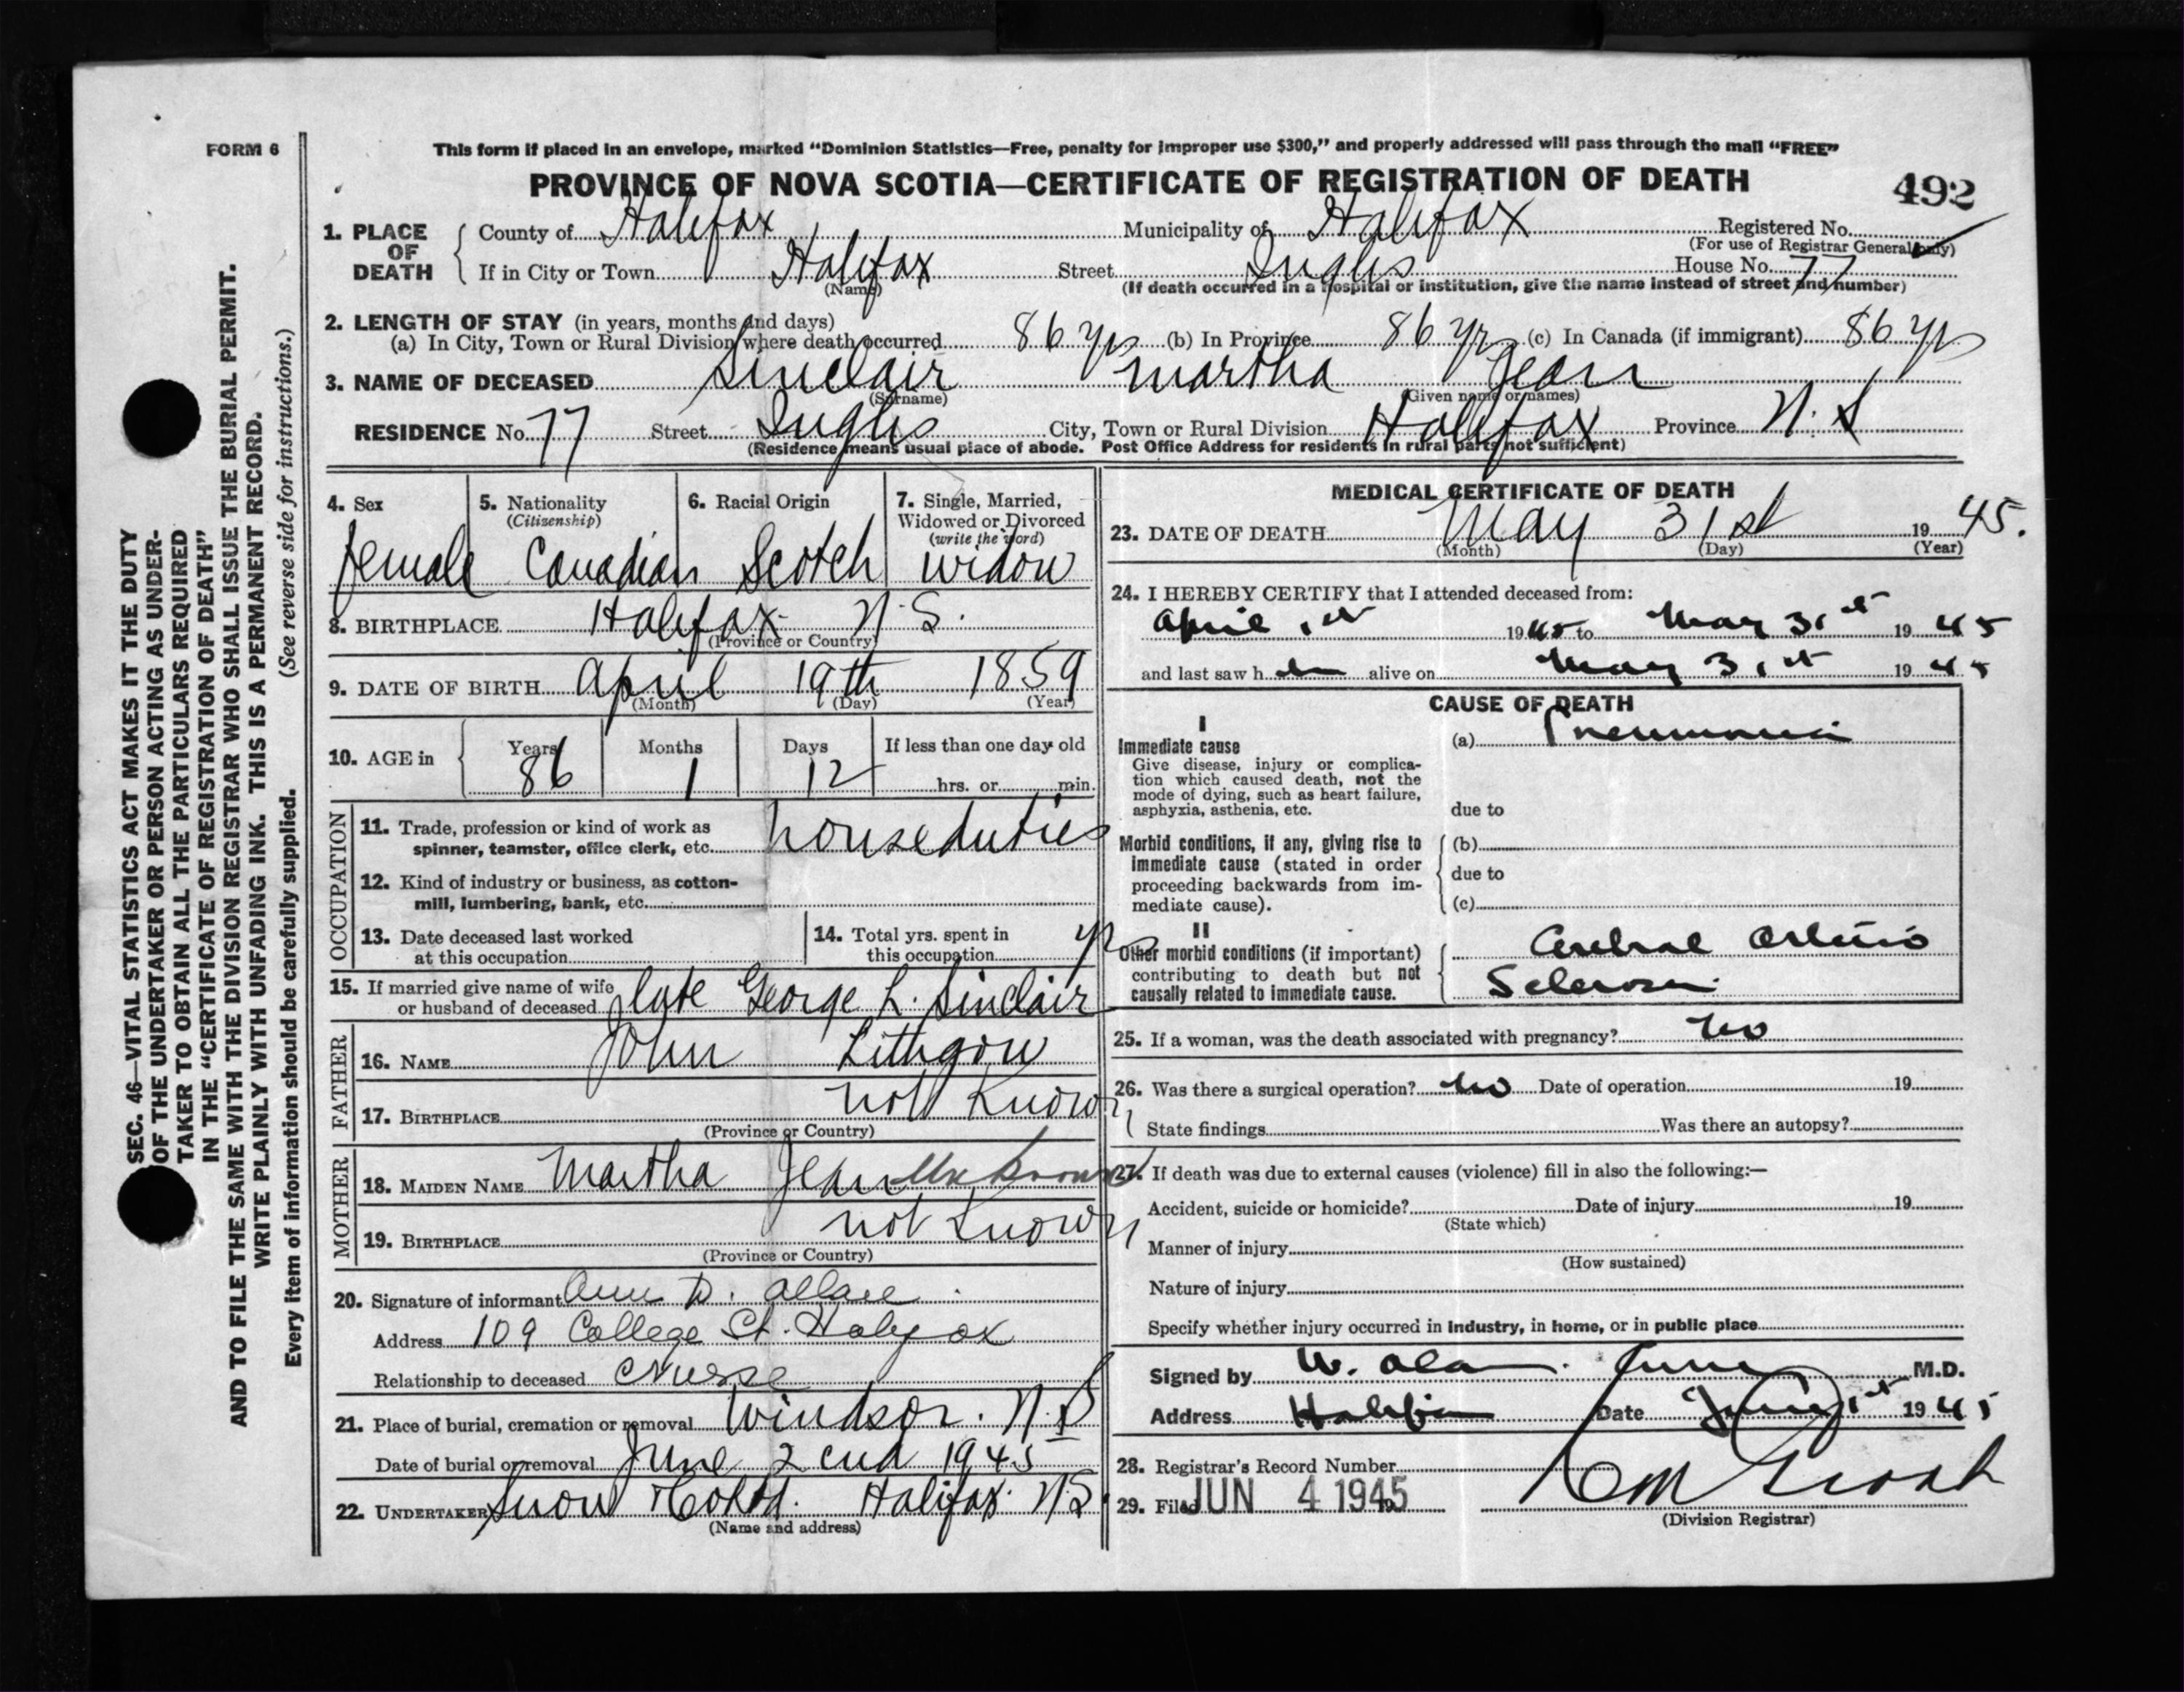 FORM 6
This form if placed in an envelope, marked "Dominion Statistics—Free, penalty for improper use $300," and properly addressed will pass through the mail "FREE"
PROVINCE OF NOVA SCOTIA—CERTIFICATE OF REGISTRATION OF DEATH 492
1. PLACE OF DEATH County of Halifax Municipality of Halifax Registered No.
(For use of Registrar General only)
If in City or Town Halifax Street Inglis House No. 77
(Name) (If death occurred in a hospital or institution, give the name instead of street and number)
2. LENGTH OF STAY (in years, months and days)
(a) In City, Town or Rural Division where death occurred 86 yrs (b) In Province 86 yrs (c) In Canada (if immigrant) 86 yrs
3. NAME OF DECEASED Sinclair Martha Jean
(Surname) (Given name or names)
RESIDENCE No. 77 Street Inglis City, Town or Rural Division Halifax Province N.S
(Residence means usual place of abode. Post Office Address for residents in rural parts not sufficient)
4. Sex 5. Nationality (Citizenship) 6. Racial Origin 7. Single, Married, Widowed or Divorced (write the word)
female Canadian Scotch widow
8. BIRTHPLACE Halifax N.S.
(Province or Country)
9. DATE OF BIRTH April 19th 1859
(Month) (Day) (Year)
10. AGE in Years Months Days If less than one day old
86 1 12 hrs. or min.
OCCUPATION
11. Trade, profession or kind of work as
spinner, teamster, office clerk, etc. houseduties
12. Kind of industry or business, as cotton-
mill, lumbering, bank, etc.
13. Date deceased last worked
at this occupation
14. Total yrs. spent in
this occupation yrs
15. If married give name of wife
or husband of deceased late George L. Sinclair
FATHER
16. NAME John Lithgow
17. BIRTHPLACE not Known
(Province or Country)
MOTHER
18. MAIDEN NAME Martha Jean Unknown
19. BIRTHPLACE not Known
(Province or Country)
20. Signature of informant
Address 109 College St. Halifax
Relationship to deceased Nurse
21. Place of burial, cremation or removal Windsor. N.S
Date of burial or removal June 2cnd 1945
22. UNDERTAKER Snow & Co Ltd. Halifax. N.S.
(Name and address)
MEDICAL CERTIFICATE OF DEATH
23. DATE OF DEATH May 31st 1945.
(Month) (Day) (Year)
24. I HEREBY CERTIFY that I attended deceased from:
April 1st 1945 to May 31st 1945
and last saw her alive on May 31st 1945
CAUSE OF DEATH
I
Immediate cause
Give disease, injury or complica-
tion which caused death, not the
mode of dying, such as heart failure,
asphyxia, asthenia, etc.
(a) Pneumonia
due to
Morbid conditions, if any, giving rise to
immediate cause (stated in order
proceeding backwards from im-
mediate cause).
(b)
due to
(c)
II
Other morbid conditions (if important)
contributing to death but not
causally related to immediate cause.
Cerebral Arterio
Sclerosis
25. If a woman, was the death associated with pregnancy? no
26. Was there a surgical operation? no Date of operation 19
State findings Was there an autopsy?
27. If death was due to external causes (violence) fill in also the following:—
Accident, suicide or homicide? Date of injury 19
(State which)
Manner of injury
(How sustained)
Nature of injury
Specify whether injury occurred in industry, in home, or in public place
Signed by W. Alan M.D.
Address Halifax Date June 1st 1945
28. Registrar's Record Number
29. Filed JUN 4 1945
(Division Registrar)
SEC. 46—VITAL STATISTICS ACT MAKES IT THE DUTY
OF THE UNDERTAKER OR PERSON ACTING AS UNDER-
TAKER TO OBTAIN ALL THE PARTICULARS REQUIRED
IN THE "CERTIFICATE OF REGISTRATION OF DEATH"
AND TO FILE THE SAME WITH THE DIVISION REGISTRAR WHO SHALL ISSUE THE BURIAL PERMIT.
WRITE PLAINLY WITH UNFADING INK. THIS IS A PERMANENT RECORD.
Every item of information should be carefully supplied. (See reverse side for instructions.)